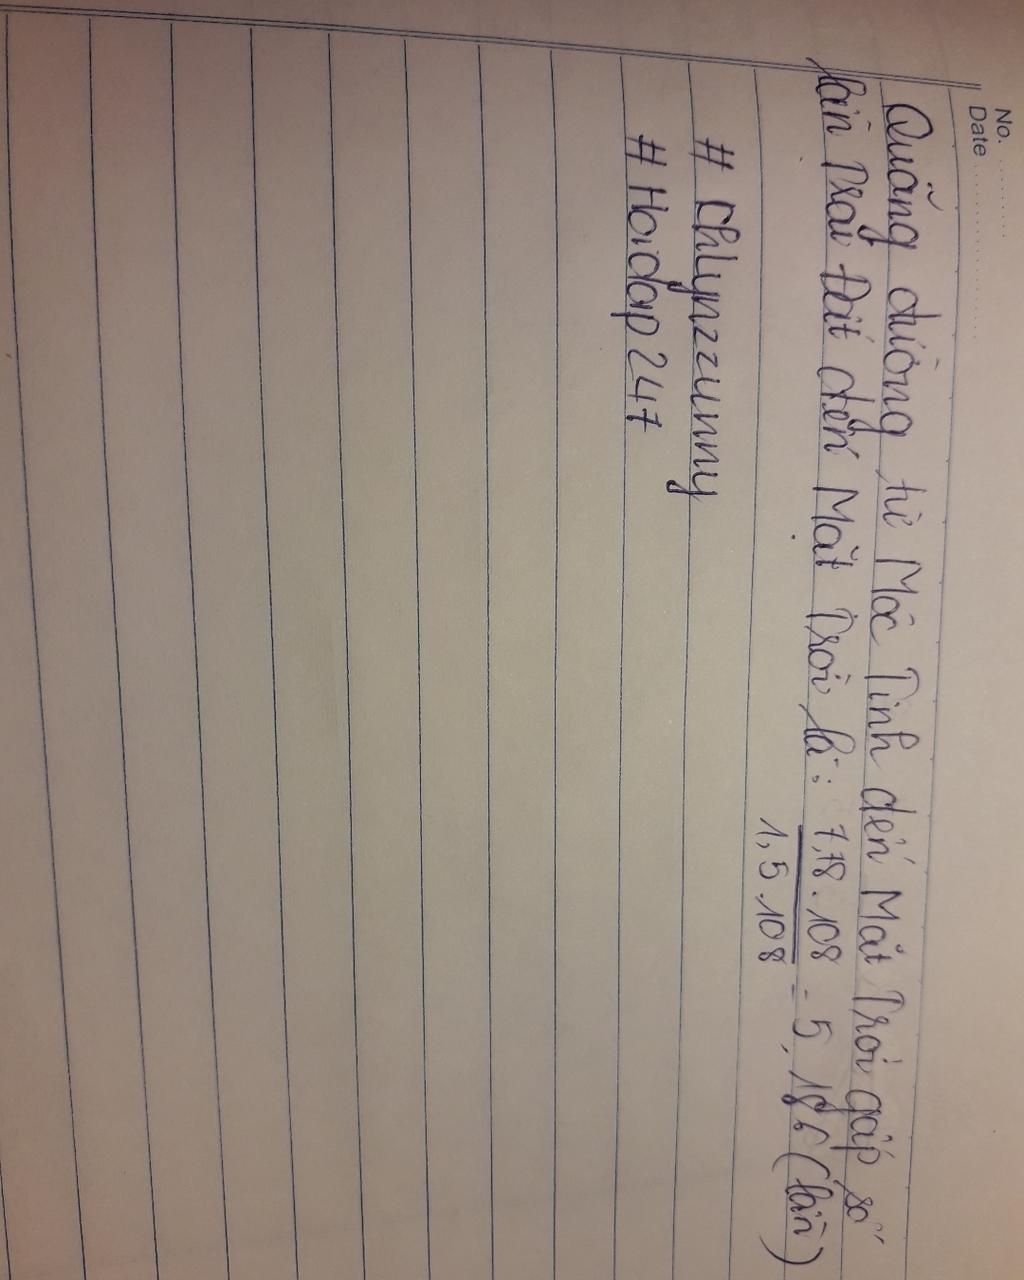 No. ..........
Date ....................
Quãng đường từ Mộc Tinh đến Mặt Trời gấp số
lần Trái Đất đến Mặt Trời là: 7,78.108
1,5.108 = 5,186 (lần)
# Chlynzzunny
# Hoidap247